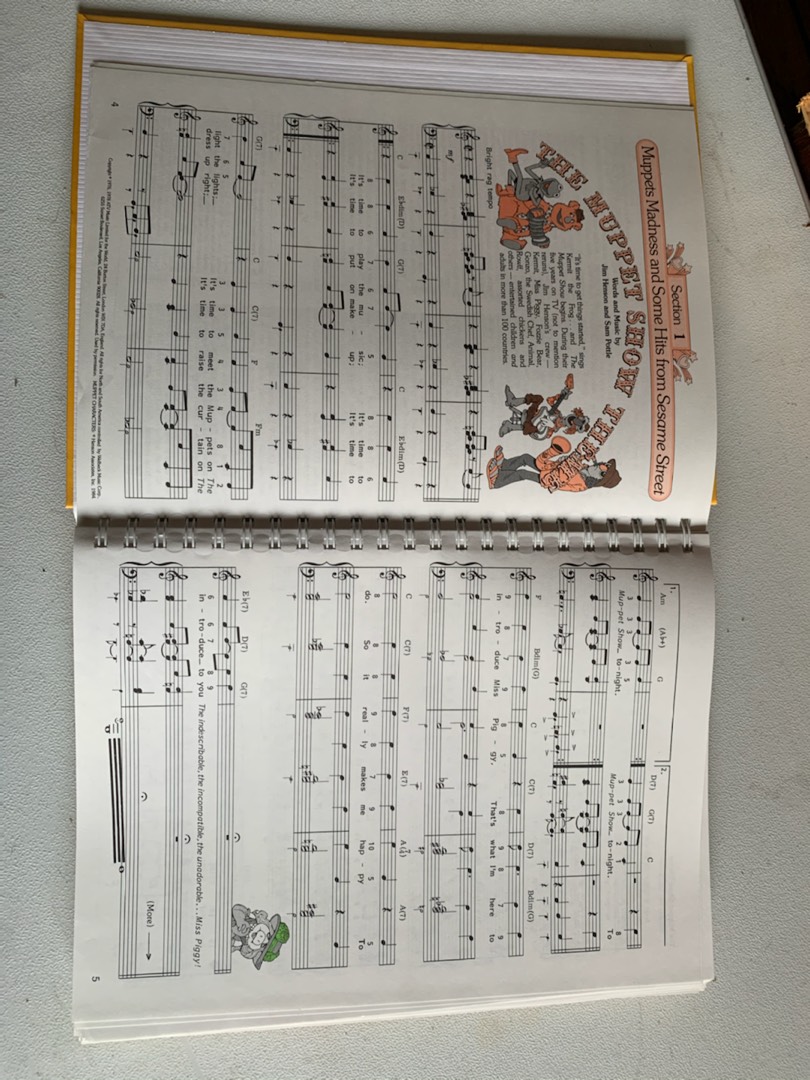 Section 1
Muppets Madness and Some Hits from Sesame Street
THE MUPPET SHOW THEME
Words and Music by
Jim Henson and Sam Pottle
"It's time to get things started," sings
Kermit the Frog, and "The
Muppet Show" begins. During their
five years on TV (not to mention
reruns), Jim Henson's crew —
Kermit, Miss Piggy, Fozzie Bear,
Gonzo, the Swedish Chef, Animal,
Rowlf, assorted chickens and
others — entertained children and
adults in more than 100 countries.
Bright rag tempo
mf
C E♭dim(D) G(7) C E♭dim(D)
8 8 6 7 6 7 5 8 8 6
It's time to play the mu - sic; It's time to
It's time to put on make - up; It's time to
G(7) C C(7) F Fm
7 6 5 3 4 5 4 3 4 8 1 2
light the lights. It's time to meet the Mup - pets on The
dress up right. It's time to raise the cur - tain on The
4
1. Am (A♭+) G 2. D(7) G(7) C
3 3 3 3 5 3 3 3 2 1 8
Mup-pet Show to-night. Mup-pet Show to-night. To
F Bdim(G) C C(7) D(7) Bdim(G)
9 8 7 9 8 5 8 9 8 7 9
in - tro - duce Miss Pig - gy. That's what I'm here to
C C(7) F(7) E(7) A(7) A(7)
8 8 8 9 8 7 9 10 5 5
do. So it real - ly makes me hap - py To
E♭(7) D(7) G(7)
6 6 7 8 9
in - tro-duce to you The indescribable, the incompatible, the unadorable...Miss Piggy!
(More)
5